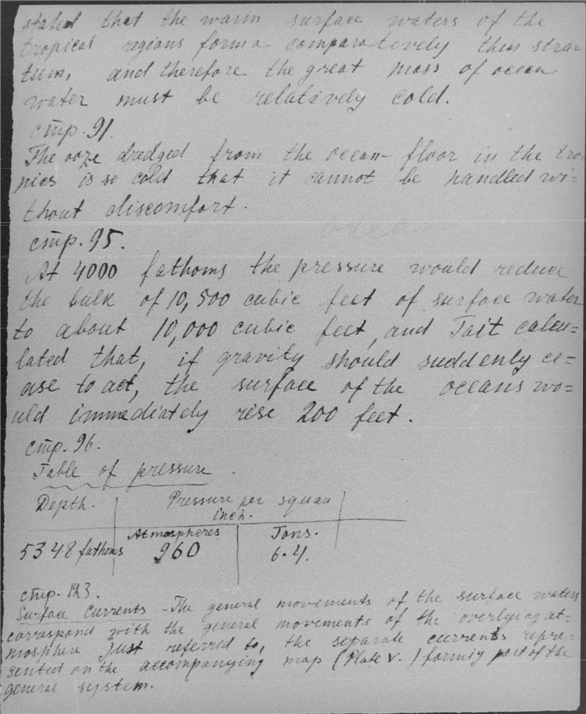 stated that the warm surface waters of the
tropical regions form a comparatively thin stra-
tum, and therefore the great mass of ocean
water must be relatively cold.
стр. 91.
The ooze dredged from the ocean-floor in the tro-
pics is so cold that it cannot be handled wi=
thout discomfort.
стр. 95.
At 4000 fathoms the pressure would reduce
the bulk of 10,500 cubic feet of surface water
to about 10,000 cubic feet, and Tait calcu=
lated that, if gravity should suddenly ce=
ase to act, the surface of the oceans wo=
uld immediately rise 200 feet.
стр. 96.
Table of pressure.
Depth. Pressure per squan
inch.
Atmospheres Tons.
5348 fathoms 960 6.4.
стр. 123.
Surface Currents - The general movements of the surface waters
correspond with the general movements of the overlying at=
mosphere just referred to, the separate currents repre=
sented on the accompanying map (Plate V.) forming part of the
general system.